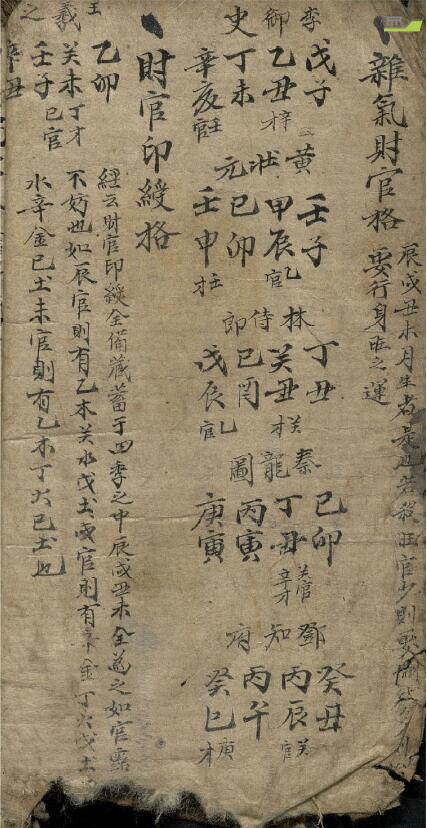 雜氣財官格
辰戌丑未月生者是也若殺旺官少則要
要行身旺之運
李御史
戊子
乙丑
丁未
辛亥
黃狀元
壬子
甲辰
己卯
壬申
林侍郎
丁丑
癸丑
己
戊辰
秦龍圖
己卯
丁丑
丙寅
庚寅
鄧知府
癸丑
丙辰
丙午
癸巳
財官印綬格
經云財官印綬全備藏蓄于四季之中辰戌丑未全為之如官露
不妨也如辰官則有乙木关水戊土戌官則有辛金丁火戊土
水辛金巳土未官則有乙木丁火巳土也
王羲之
乙卯
关未
壬子
辛丑